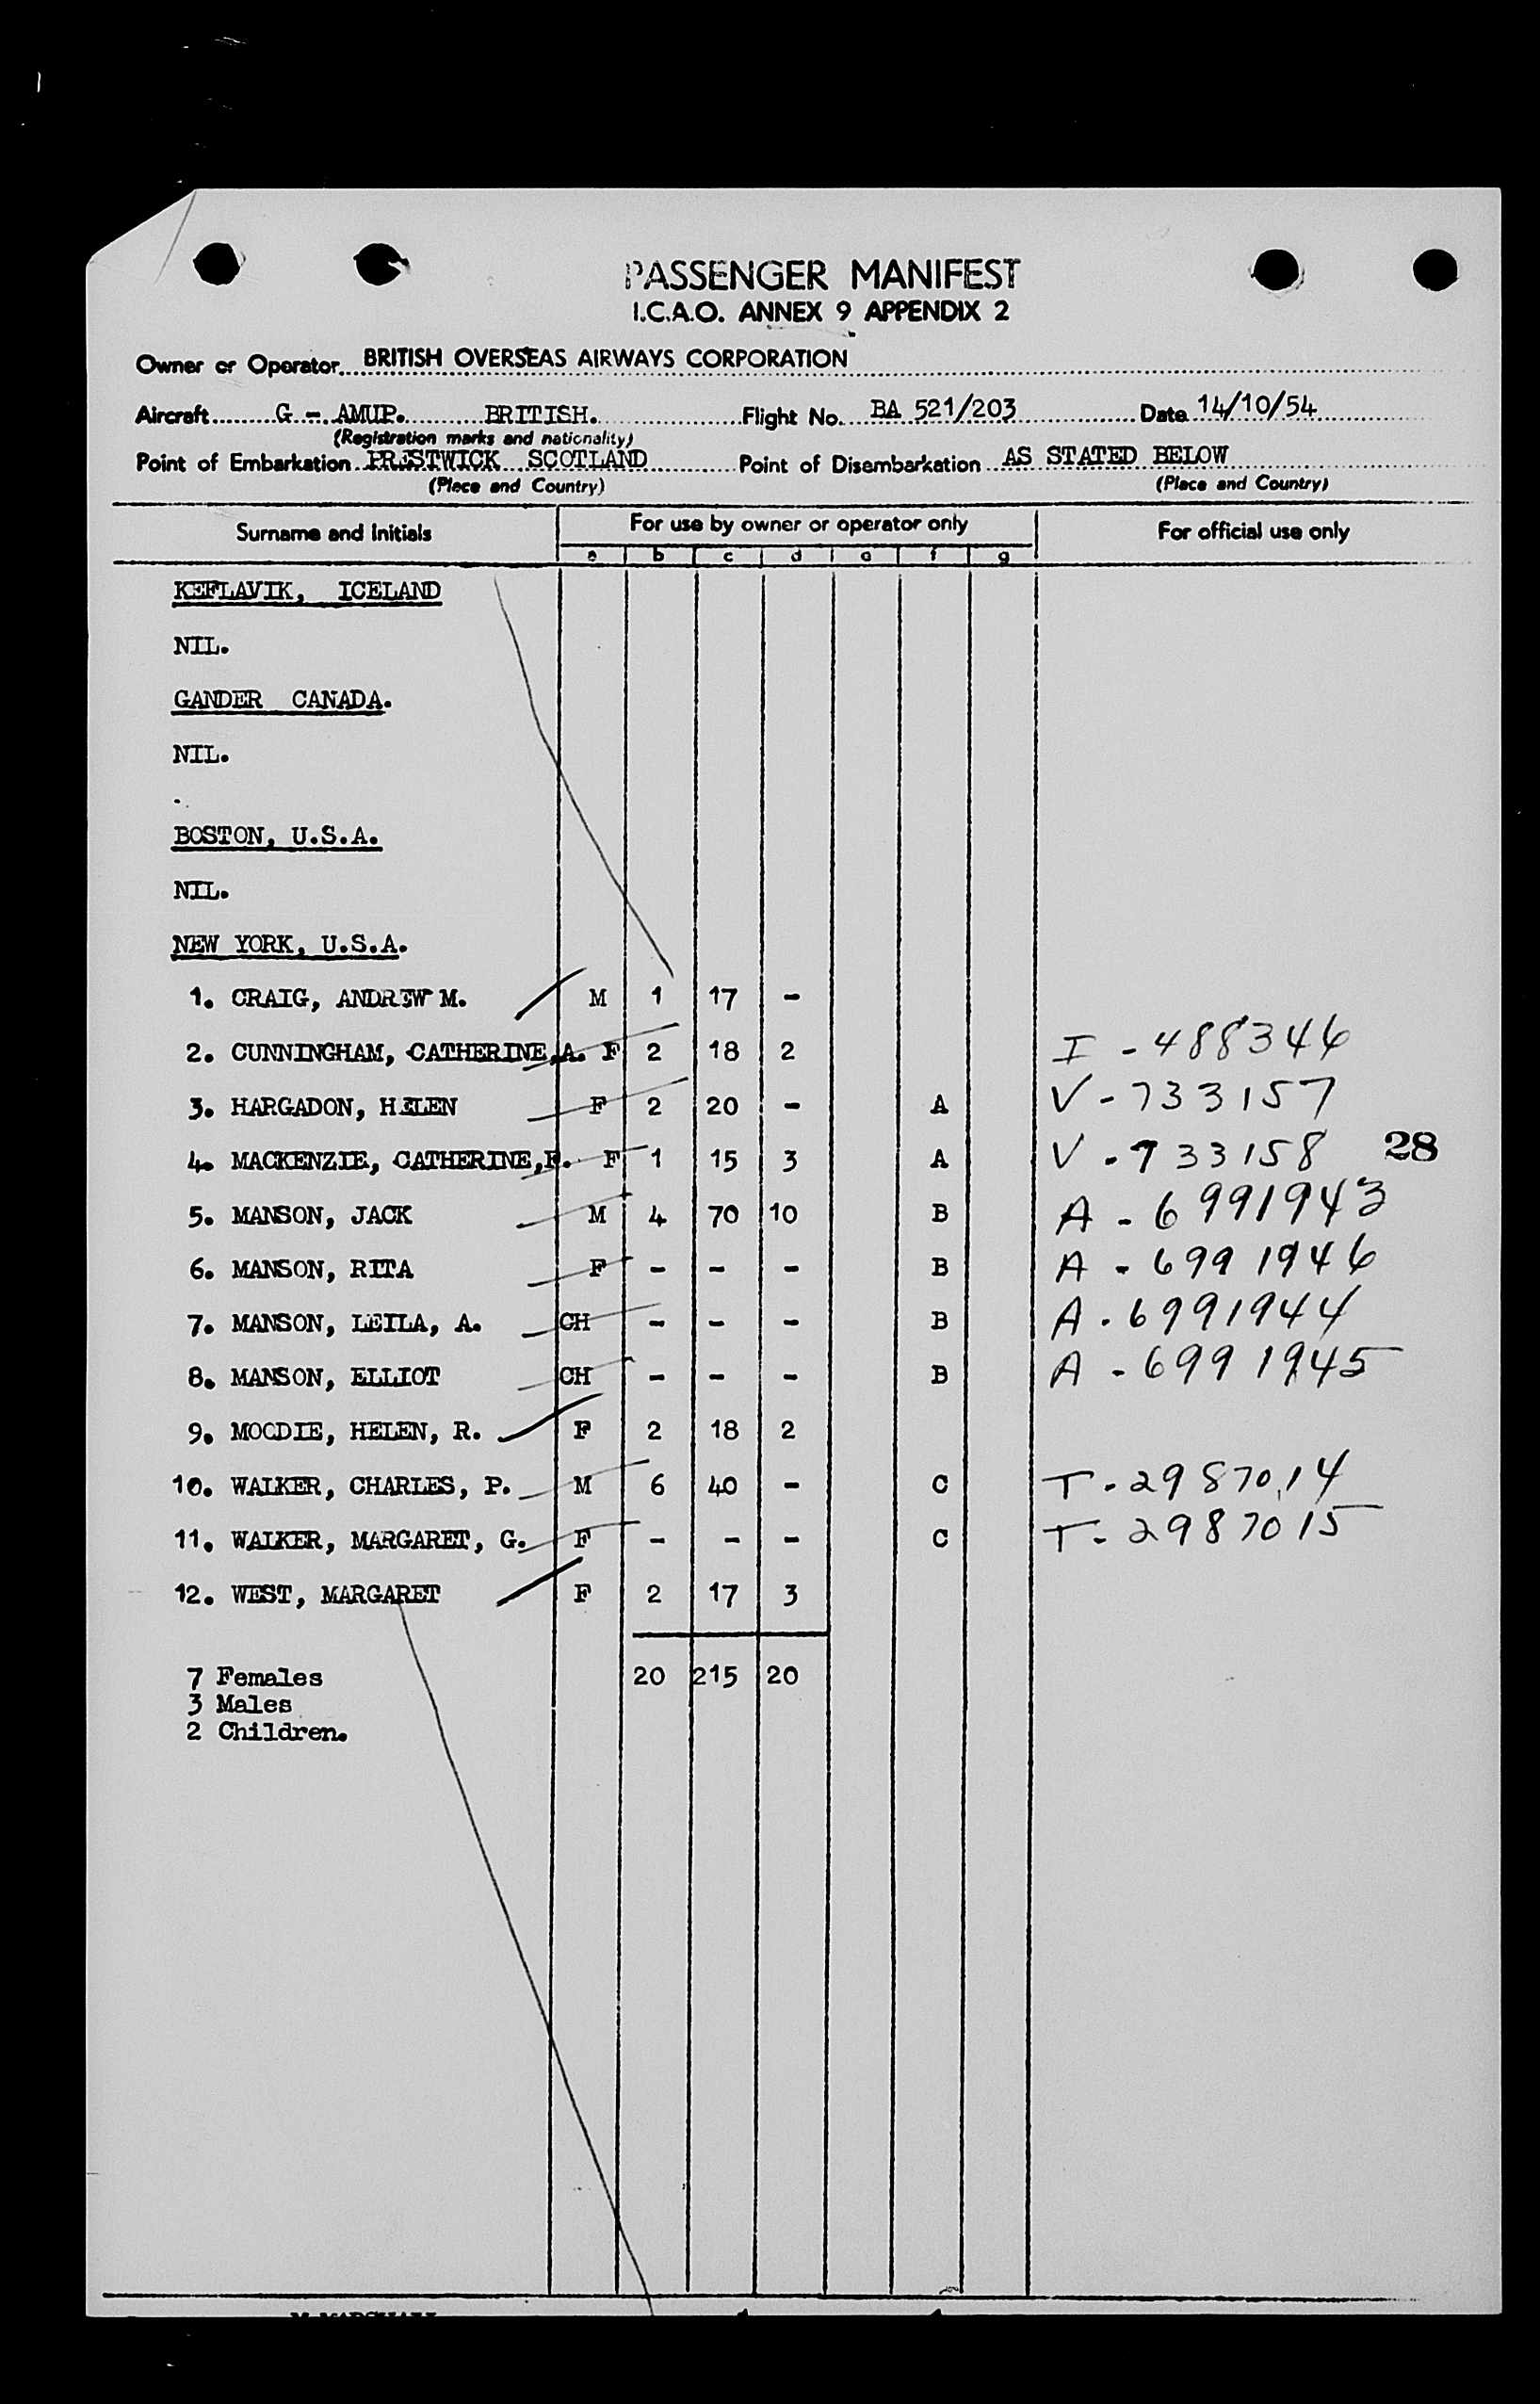 PASSENGER MANIFEST
I.C.A.O. ANNEX 9 APPENDIX 2
Owner or Operator BRITISH OVERSEAS AIRWAYS CORPORATION
Aircraft G - AMUP. BRITISH. Flight No. BA 521/203 Date 14/10/54
(Registration marks and nationality)
Point of Embarkation PRESTWICK SCOTLAND Point of Disembarkation AS STATED BELOW
(Place and Country) (Place and Country)
Surname and Initials For use by owner or operator only For official use only
a b c d e f g
KEFLAVIK, ICELAND
NIL.
GANDER CANADA.
NIL.
BOSTON, U.S.A.
NIL.
NEW YORK, U.S.A.
1. CRAIG, ANDREW M. M 1 17 -
2. CUNNINGHAM, CATHERINE,A. F 2 18 2 I - 488346
3. HARGADON, HELEN F 2 20 - A V - 733157
4. MACKENZIE, CATHERINE, F 1 15 3 A V - 733158 28
5. MANSON, JACK M 4 70 10 B A - 6991943
6. MANSON, RITA F - - - B A - 6991946
7. MANSON, LEILA, A. CH - - - B A - 6991944
8. MANSON, ELLIOT CH - - - B A - 6991945
9. MOODIE, HELEN, R. F 2 18 2
10. WALKER, CHARLES, P. M 6 40 - C T - 2987014
11. WALKER, MARGARET, G. F - - - C T - 2987015
12. WEST, MARGARET F 2 17 3
20 215 20
7 Females
3 Males
2 Children.